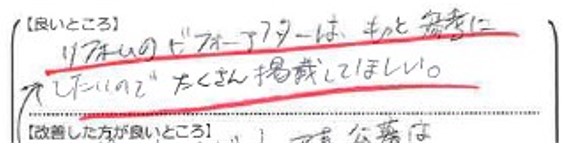 【良いところ】
リフォームのビフォーアフターは、もっと参考に
したいので たくさん掲載してほしい。
【改善した方が良いところ】